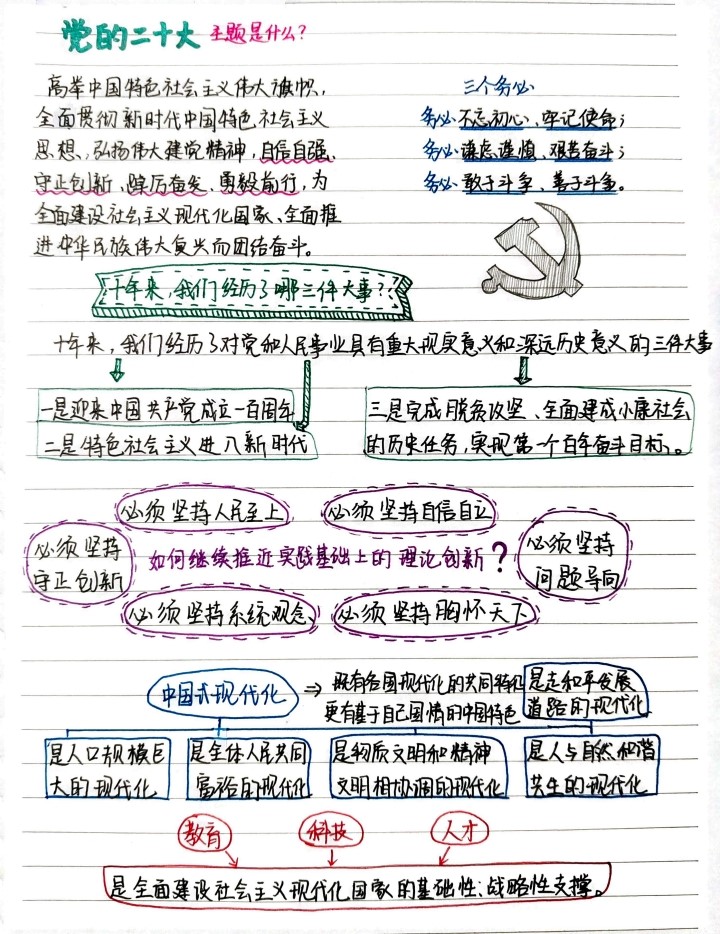 党的二十大 主题是什么?
高举中国特色社会主义伟大旗帜,
全面贯彻新时代中国特色社会主义
思想、弘扬伟大建党精神,自信自强、
守正创新、踔厉奋发、勇毅前行,为
全面建设社会主义现代化国家、全面推
进中华民族伟大复兴而团结奋斗。
三个务必
务必不忘初心、牢记使命;
务必谦虑谨慎、艰苦奋斗;
务必敢于斗争、善于斗争。
十年来,我们经历了哪三件大事?
十年来,我们经历了对党和人民事业具有重大现实意义和深远历史意义的三件大事
一是迎来中国共产党成立一百周年
二是特色社会主义进入新时代
三是完成脱贫攻坚、全面建成小康社会
的历史任务,实现第一个百年奋斗目标。
必须坚持人民至上
必须坚持自信自立
必须坚持
守正创新
如何继续推近实践基础上的理论创新?
必须坚持
问题导向
必须坚持系统观念
必须坚持胸怀天下
中国式现代化
⇒ 既有各国现代化的共同特征
更有基于自己国情的中国特色
是走和平发展
道路的现代化
是人口规模巨
大的现代化
是全体人民共同
富裕的现代化
是物质文明和精神
文明相协调的现代化
是人与自然和谐
共生的现代化
教育
科技
人才
是全面建设社会主义现代化国家的基础性、战略性支撑。